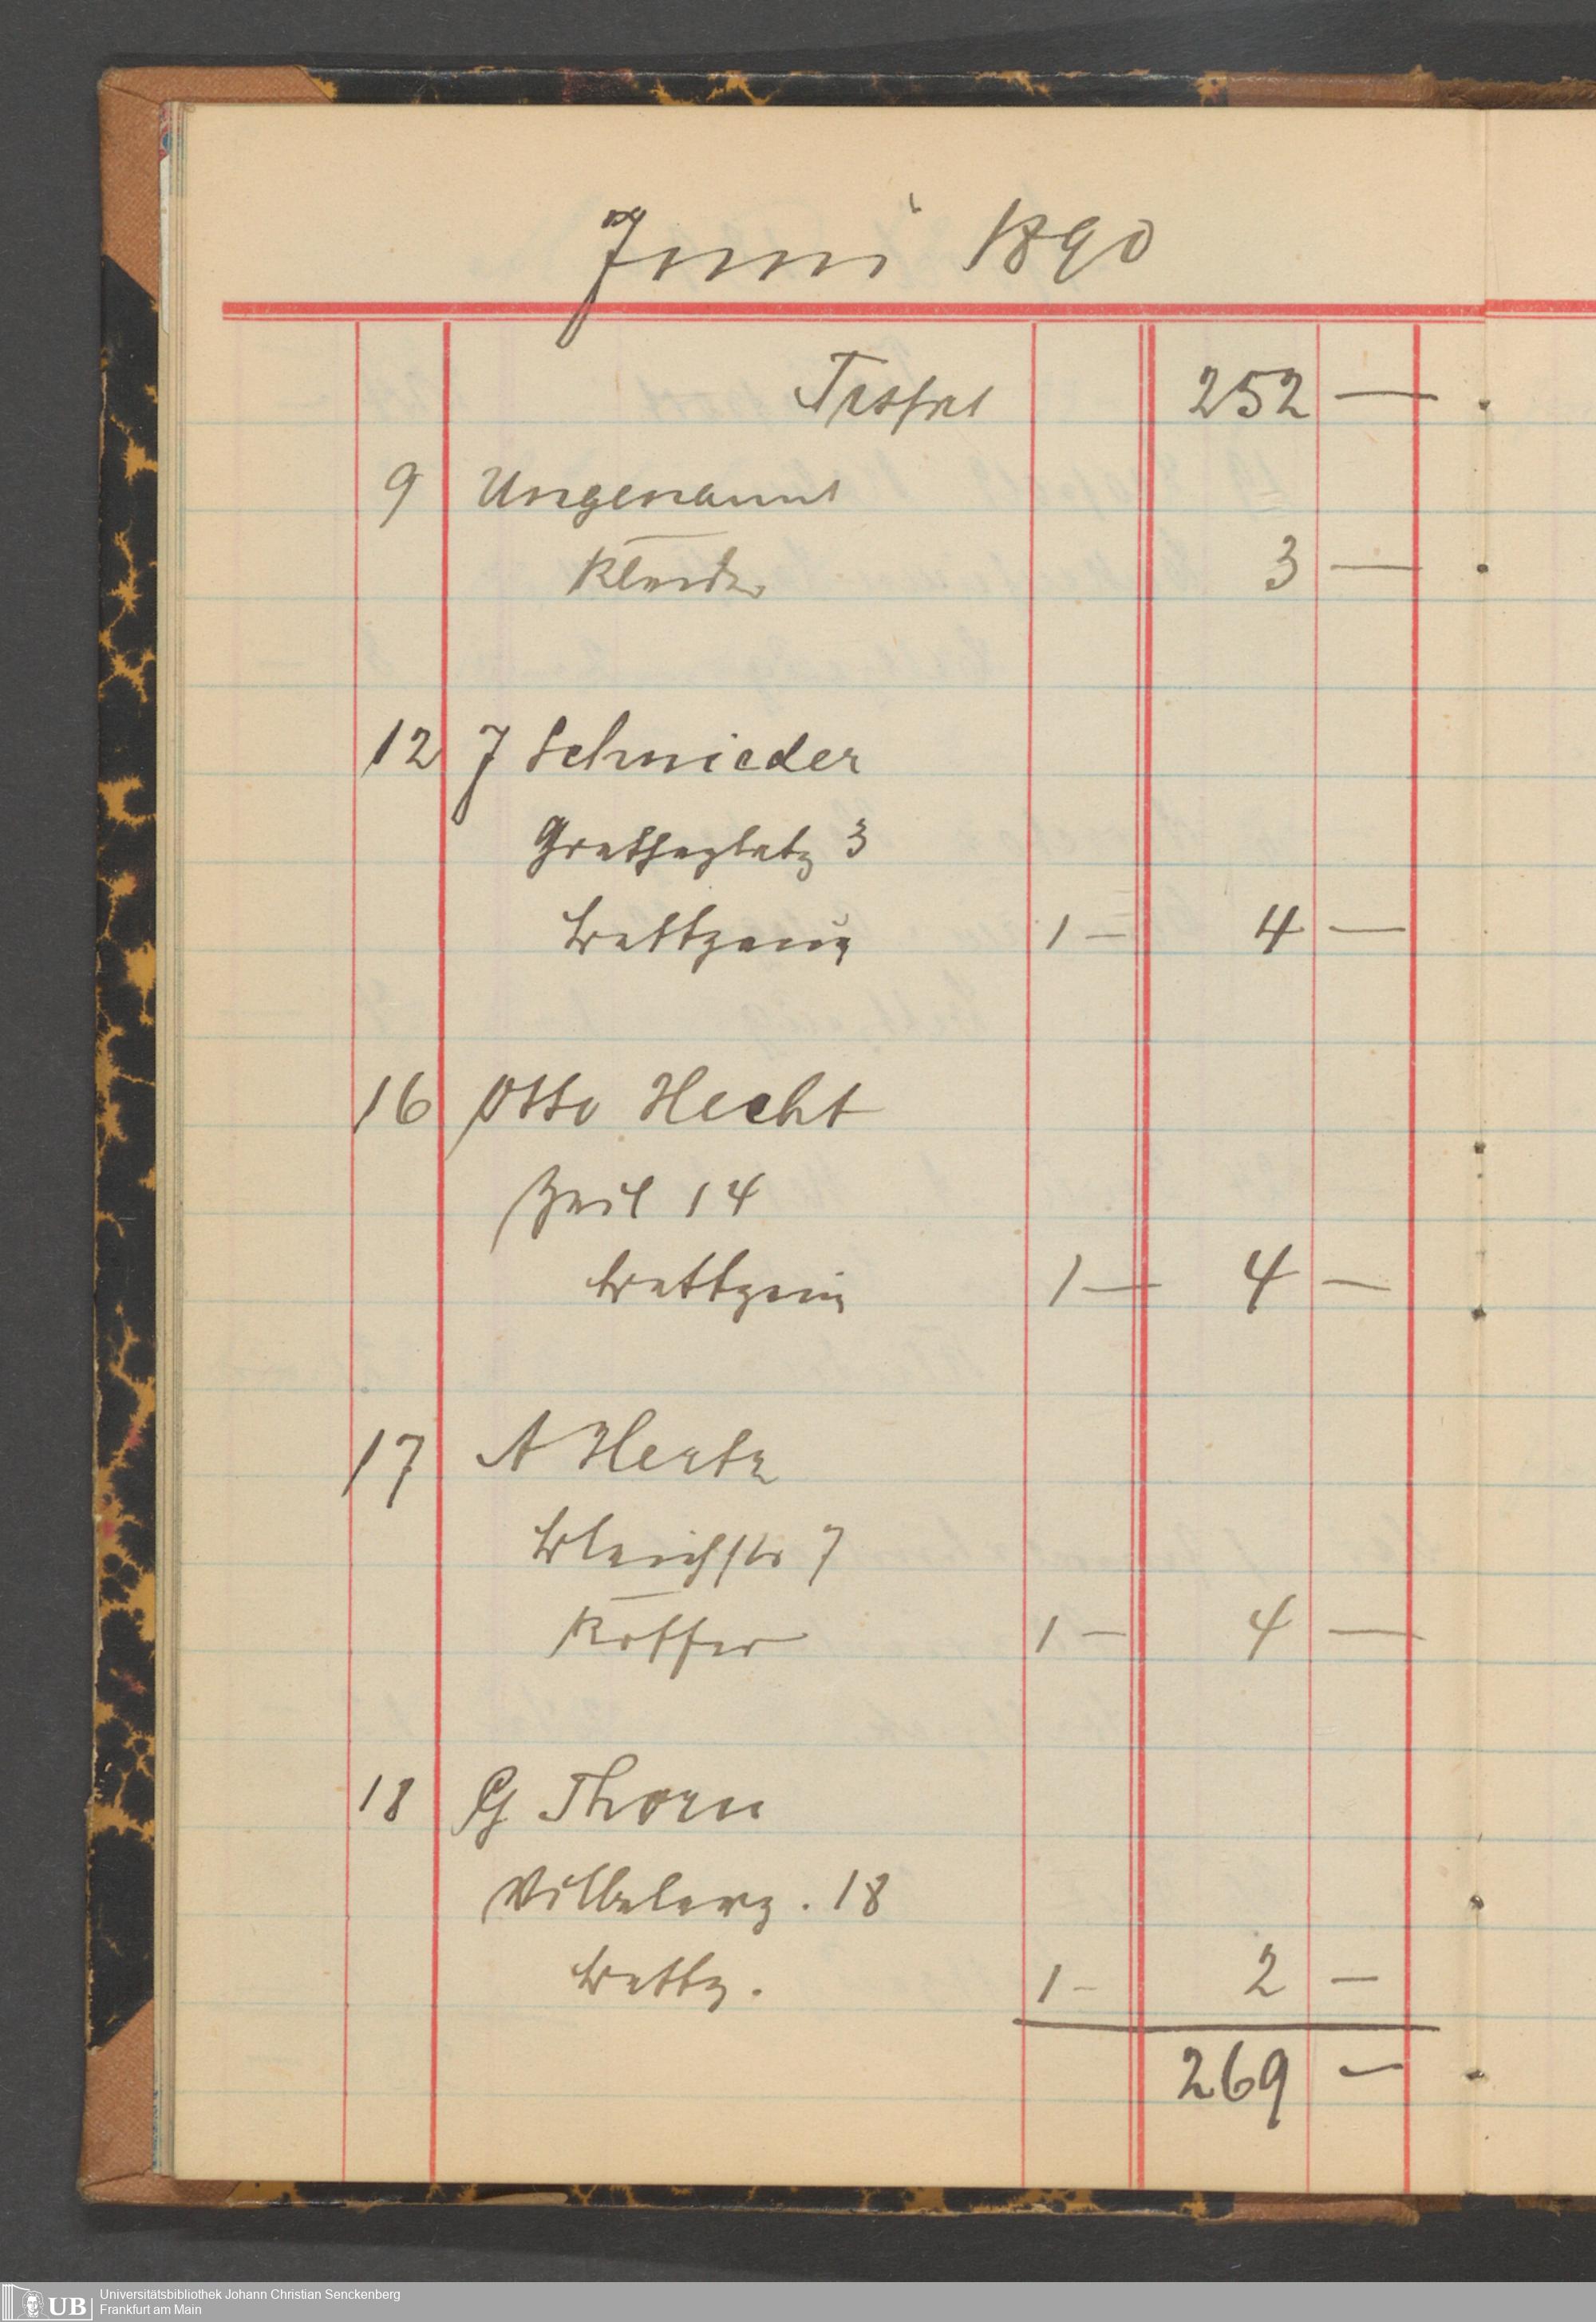 Juni 1890
Trsprt 252 —
9 Ungenannt
Kleider 3 —
12 J Schnieder
Goetheplatz 3
Bettzeug 1 — 4 —
16 Otto Hecht
Zeil 14
Bettzeug 1 — 4 —
17 A Hertz
Bleichstr 7
Koffer 1 — 4 —
18 G Thorn
Vilbelerg. 18
Bettz. 1 — 2 —
269 —
UB Universitätsbibliothek Johann Christian Senckenberg
Frankfurt am Main